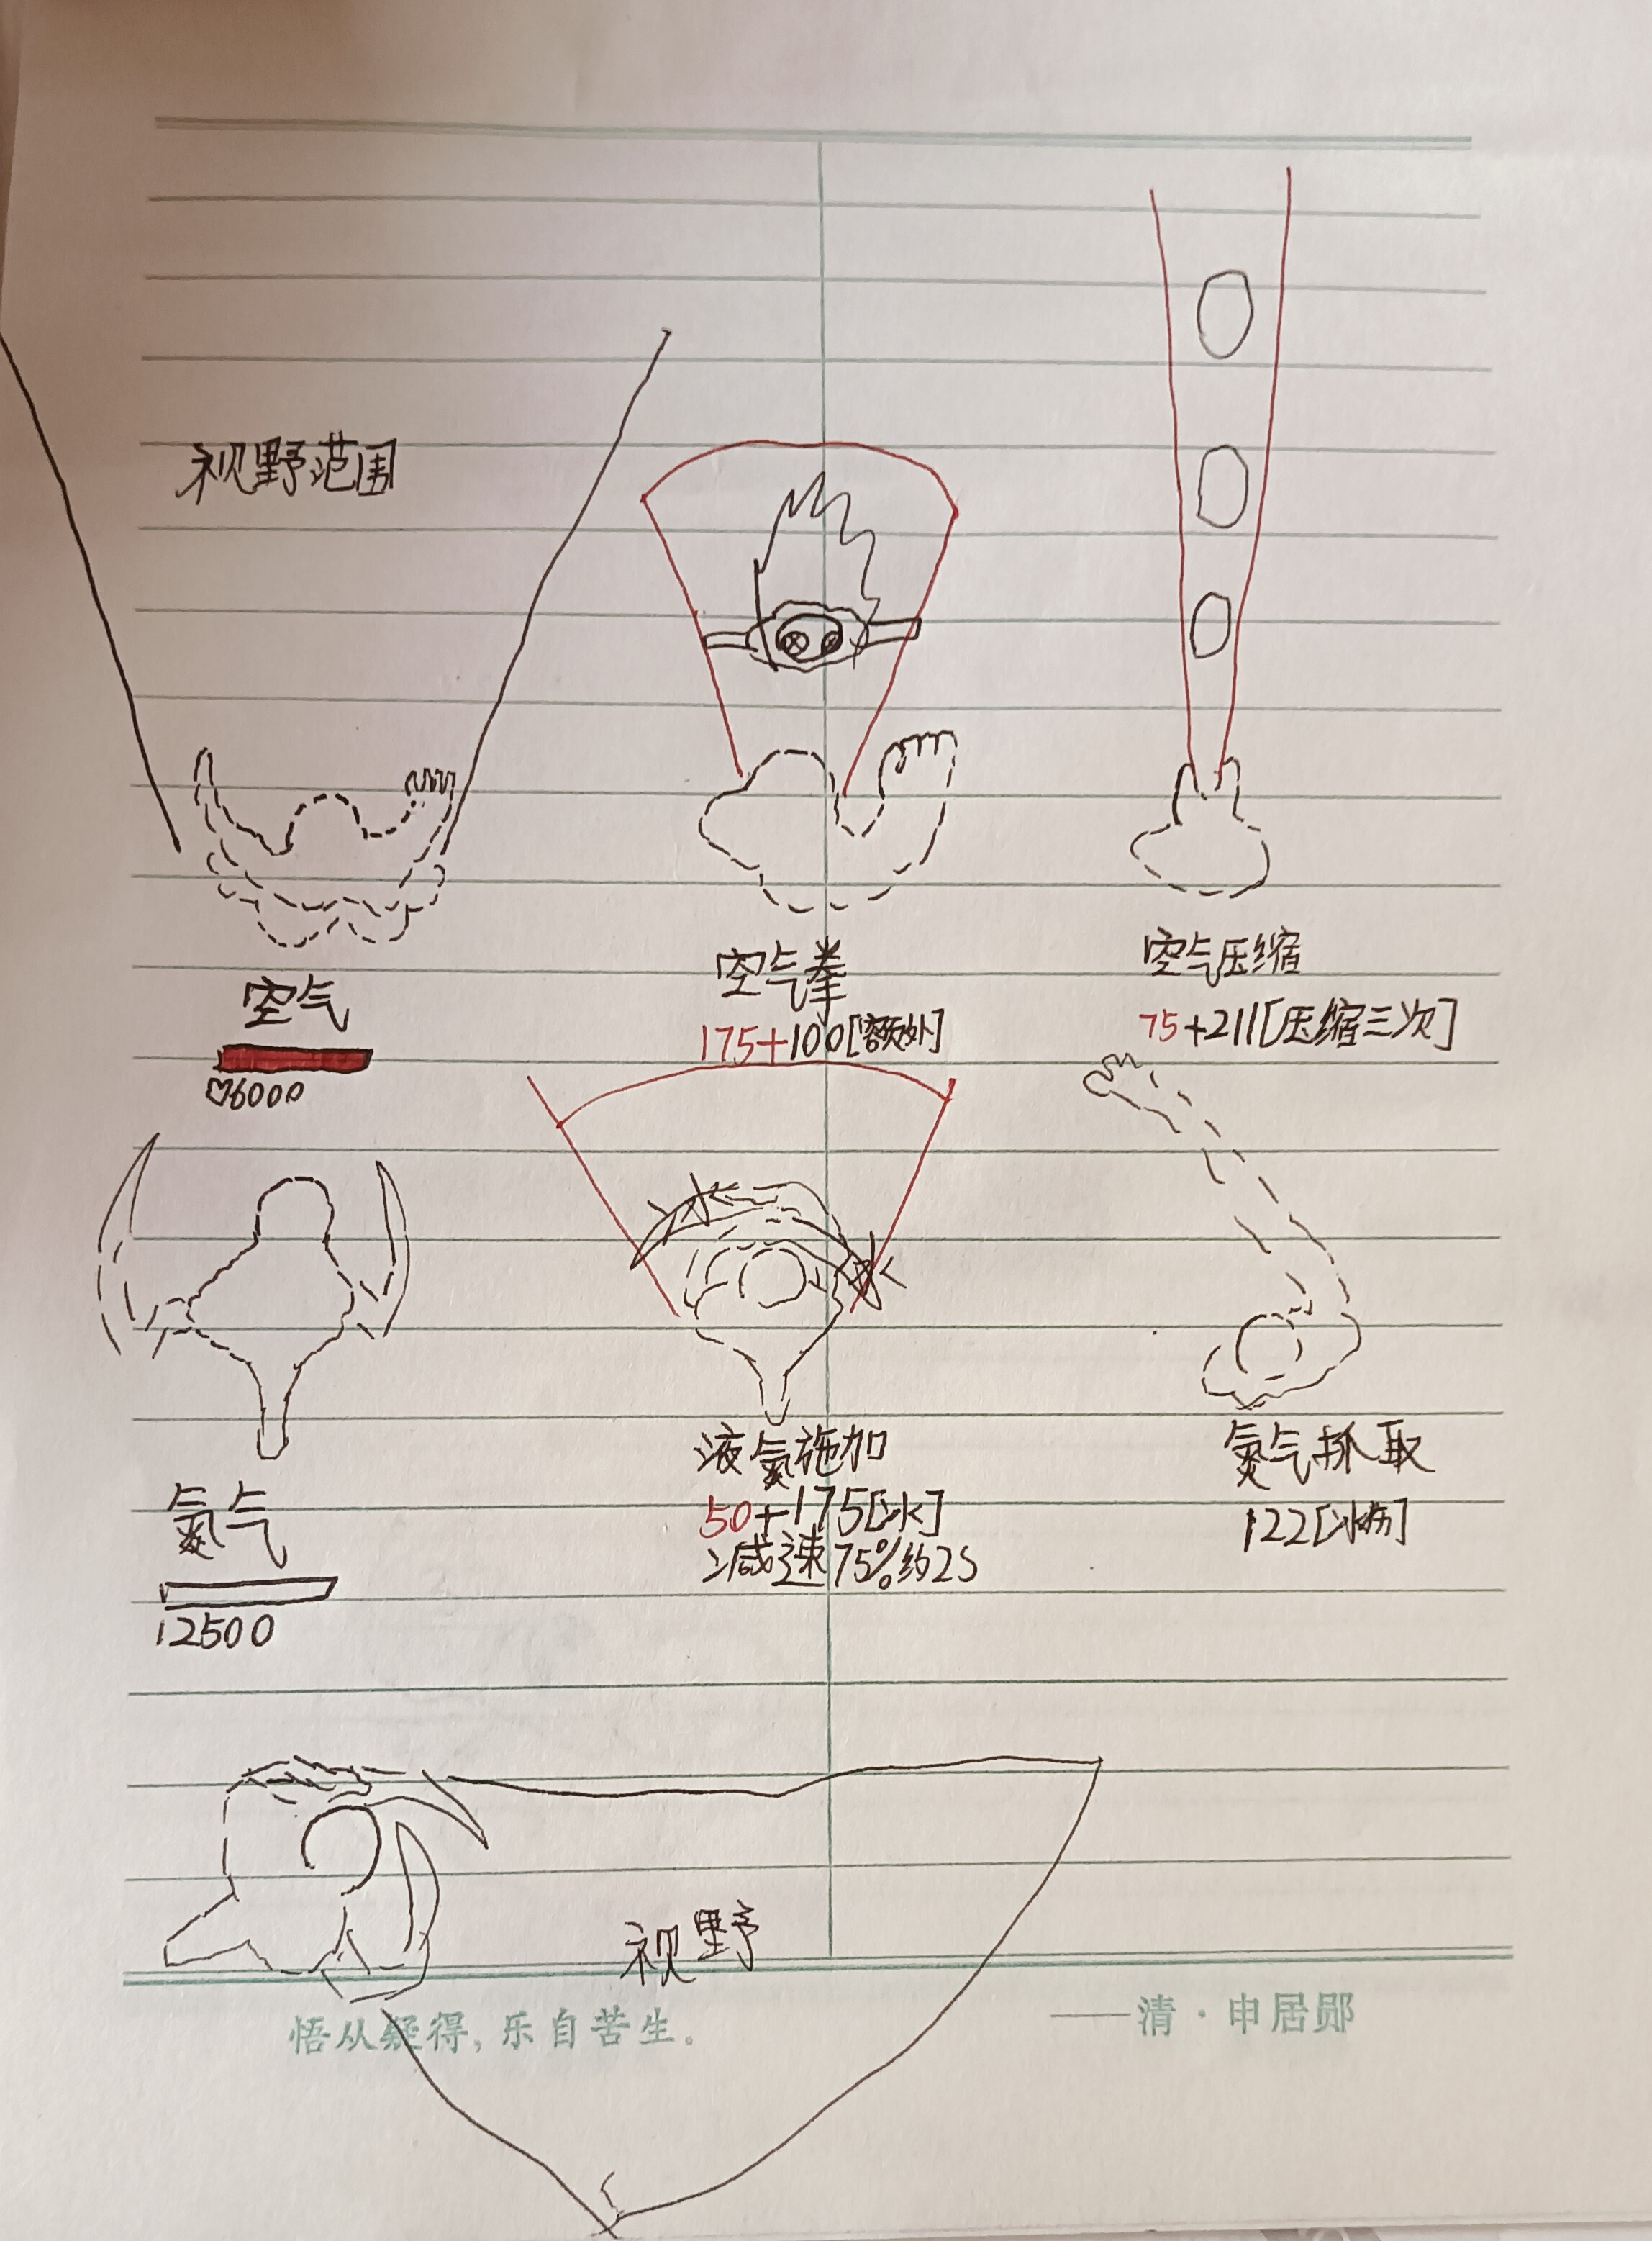 视野范围
空气
♡6000
空气拳
175+100[额外]
空气压缩
75+211[压缩三次]
氮气
12500
液氮施加
50+175[冰]
减速75%约2S
氮气抓取
122[冰伤]
视野
悟从疑得，乐自苦生。
——清·申居郧